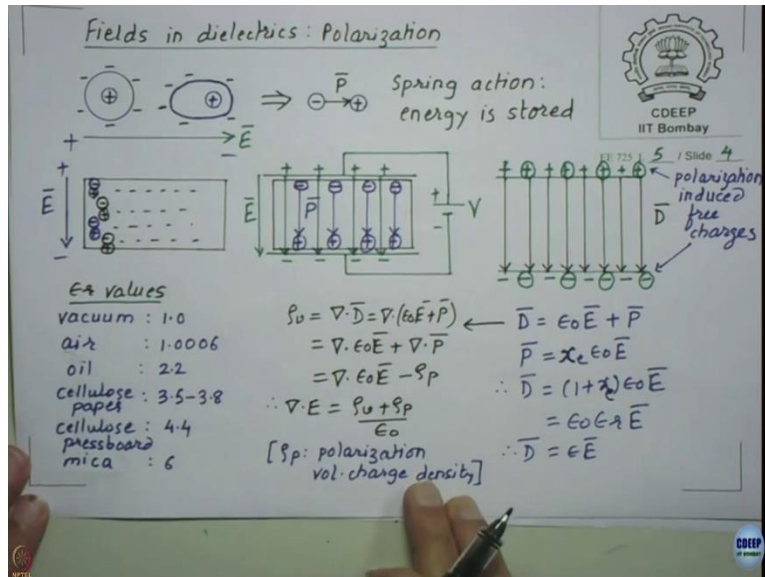 Fields in dielectrics : Polarization
P̄
Spring action:
energy is stored
CDEEP
IIT Bombay
EE 725 L 5 / Slide 4
Ē
Ē
Ē
P̄
V
D̄
polarization
induced
free
charges
εr values
vacuum : 1.0
air : 1.0006
oil : 2.2
cellulose paper : 3.5-3.8
cellulose pressboard : 4.4
mica : 6
ρv = ∇·D̄ = ∇·(ε0Ē+P̄)
= ∇·ε0Ē + ∇·P̄
= ∇·ε0Ē − ρp
∴ ∇·E = (ρv + ρp)/ε0
[ρp: polarization
vol. charge density]
D̄ = ε0Ē + P̄
P̄ = χe ε0Ē
∴ D̄ = (1+χe)ε0Ē
= ε0 εr Ē
∴ D̄ = εĒ
NPTEL
CDEEP
IIT BOMBAY